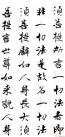 須菩提所言一切法者即
非一切法是故名一切法
須菩提譬如人身長大須
菩提言世尊如來說人身